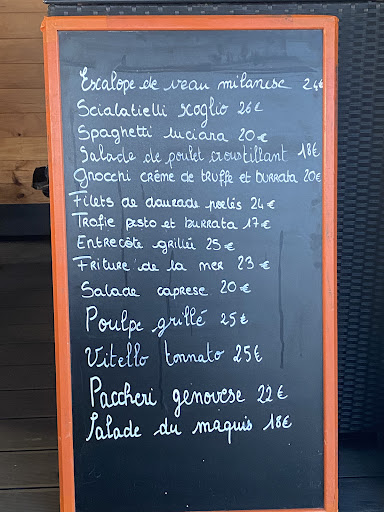 Escalope de veau milanese 24€
Scialatielli scoglio 26€
Spaghetti luciana 20€
Salade de poulet croustillant 18€
Gnocchi crème de truffe et burrata 20€
Filets de daurade poelés 24€
Trofie pesto et burrata 17€
Entrecôte grillée 25€
Friture de la mer 23€
Salade caprese 20€
Poulpe grillé 25€
Vitello tonnato 25€
Paccheri genovese 22€
Salade du maquis 18€